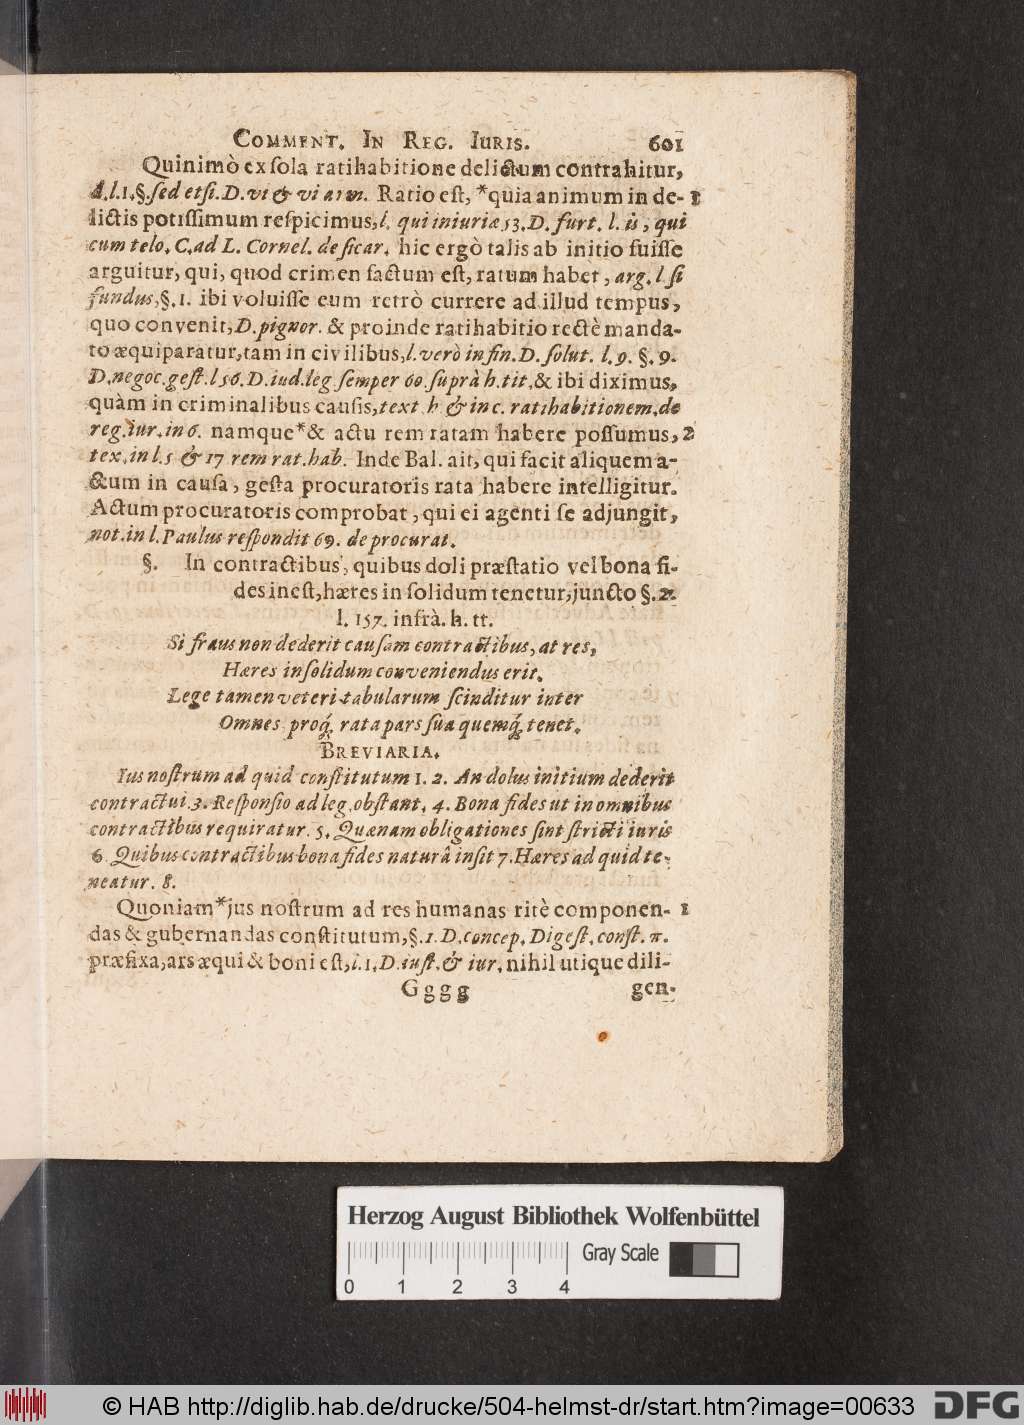 COMMENT. IN REG. IURIS. 601
Quinimò ex ſola ratihabitione delictum contrahitur,
d.l.1.§.ſed etſi.D.vi & vi arm. Ratio eſt, *quia animum in de- 1
lictis potiſſimum reſpicimus, l. qui iniuriæ 53.D. furt. l. is, qui
cum telo. C.ad L. Cornel. de ſicar. hic ergò talis ab initio fuiſſe
arguitur, qui, quod crimen factum eſt, ratum habet, arg. l ſi
fundus,§.1. ibi voluiſſe eum retrò currere ad illud tempus,
quo convenit, D.pignor. & proinde ratihabitio rectè manda-
to æquiparatur, tam in civilibus, l.verò in fin.D. ſolut. l.9. §.9.
D.negoc.geſt.l 56.D.iud.leg ſemper 60.ſuprà h.tit.& ibi diximus,
quàm in criminalibus cauſis, text h & in c. ratihabitionem.de
reg.iur.in 6. namque*& actu rem ratam habere poſſumus, 2
tex.in l.5 & 17 rem rat.hab. Inde Bal. ait, qui facit aliquem a-
ctum in cauſa, geſta procuratoris rata habere intelligitur.
Actum procuratoris comprobat, qui ei agenti ſe adjungit,
not.in l.Paulus reſpondit 69. de procurat.
§. In contractibus, quibus doli præſtatio vel bona fi-
des ineſt, hæres in ſolidum tenetur, juncto §.2.
l. 157. infrà. h. tt.
Si fraus non dederit cauſam contractibus, at res,
Hæres in ſolidum conveniendus erit.
Lege tamen veteri tabularum ſcinditur inter
Omnes proq́; rata pars ſua quemq́; tenet.
BREVIARIA.
Ius noſtrum ad quid conſtitutum 1. 2. An dolus initium dederit
contractui.3. Reſponſio ad leg.obſtant. 4. Bona fides ut in omnibus
contractibus requiratur. 5. Quænam obligationes ſint ſtricti iuris
6 Quibus contractibus bona fides naturâ inſit 7.Hæres ad quid te-
neatur. 8.
Quoniam*jus noſtrum ad res humanas ritè componen- 1
das & gubernandas conſtitutum, §.1.D.concep.Digeſt.conſt.π.
præfixa, ars æqui & boni eſt, l.1.D.iuſt.& iur. nihil utique dili-
Gggg gen-
Herzog August Bibliothek Wolfenbüttel
Gray Scale
0 1 2 3 4
© HAB http://diglib.hab.de/drucke/504-helmst-dr/start.htm?image=00633 DFG